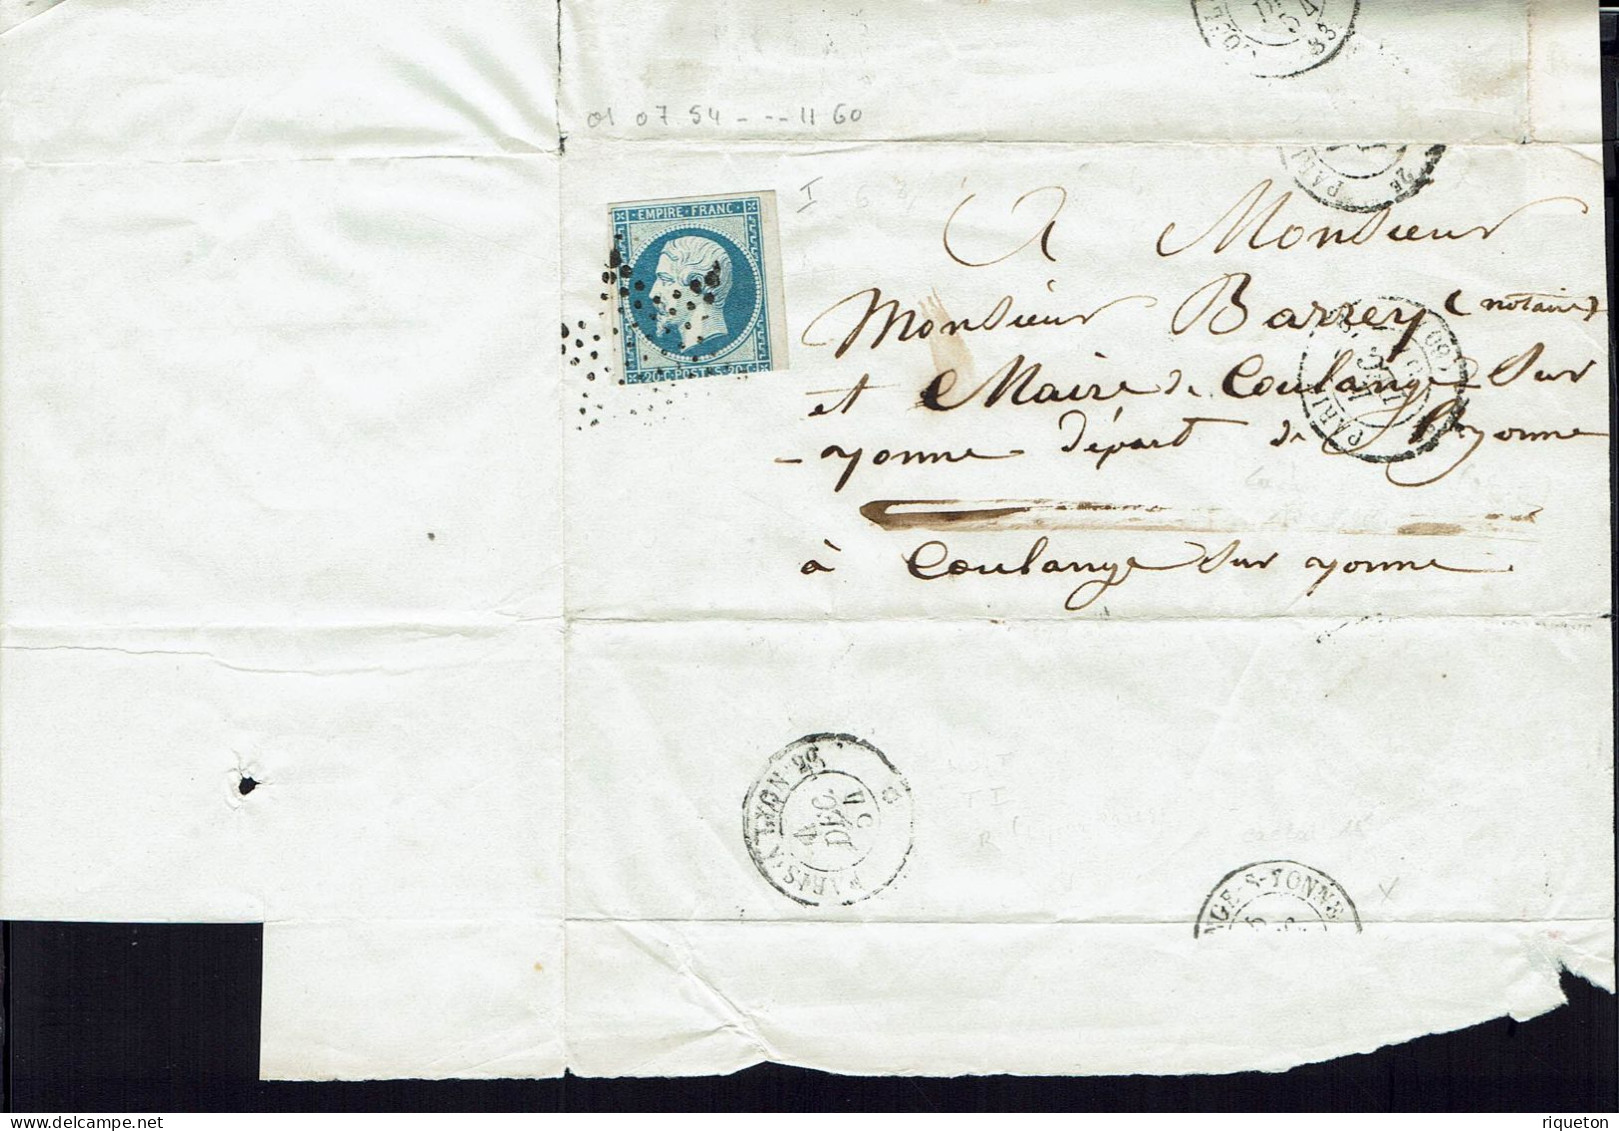 01 07 54 - -- 11 60
I
EMPIRE FRANC
20 C POSTES 20 C
PARI
2E
A Monsieur
Monsieur Barrey (notaire)
et Maire de Coulange Sur
yonne départ de l'yonne
à Coulange Sur yonne
PARIS
(60)
PARIS A LYON
4
DEC
NGE-S-YONNE
5
riqueton